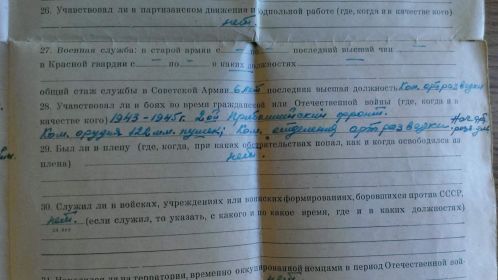 26. Участвовал ли в партизанском движении и подпольной работе (где, когда и в качестве кого)
нет.
27. Военная служба: в старой армии с — по — последний высший чин —
в Красной гвардии с — по — в каких должностях —
общий стаж службы в Советской Армии 6 лет последняя высшая должность Ком. отд. разведки
28. Участвовал ли в боях во время гражданской или Отечественной войны (где, когда и в
качестве кого) 1943-1945г. 2ой Прибалтийский фронт.
Ком. орудия 122 мм. пушек, Ком. отделения арт. разведки.
29. Был ли в плену (где, когда, при каких обстоятельствах попал, как и когда освободился из
плена) нет.
30. Служил ли в войсках, учреждениях или воинских формированиях, боровшихся против СССР,
нет. (если служил, то указать, с какого и по какое время, где и в каких должностях)
да, нет
31. Находился ли на территории, временно оккупированной немцами в период Отечественной вой-
нет.